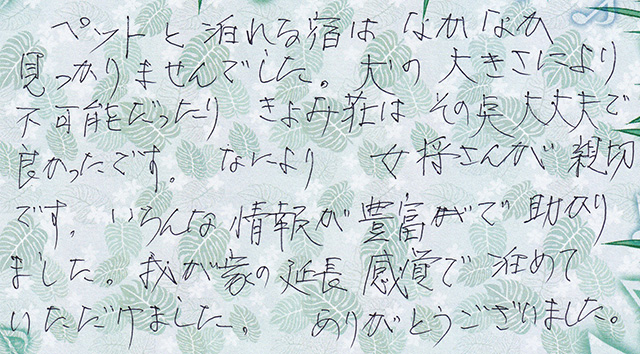 ペットと泊れる宿は なかなか
見つかりませんでした。犬の大きさにより
不可能だったり きよみ荘は その点大丈夫で
良かったです。 なにより 女将さんが親切
です。いろんな情報が豊富で助かり
ました。我が家の延長感覚で泊めて
いただけました。 ありがとうございました。